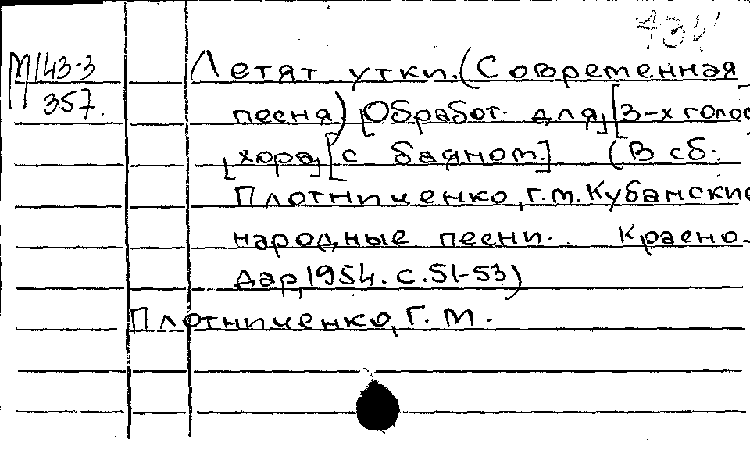 М143-3
357.
Летят утки. (Современная
песня) [Обработ. для] [3-х голос
[хора] [с баяном.] (В сб:
Плотниченко, Г.М. Кубанские
народные песни.. Красно-
дар, 1954. с. 51-53)
Плотниченко, Г. М.